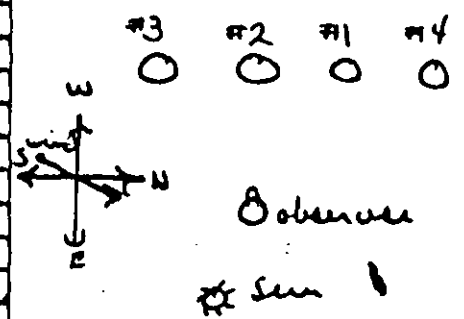 #3 #2 #1 #4
W
wind
S N
E
observer
sun